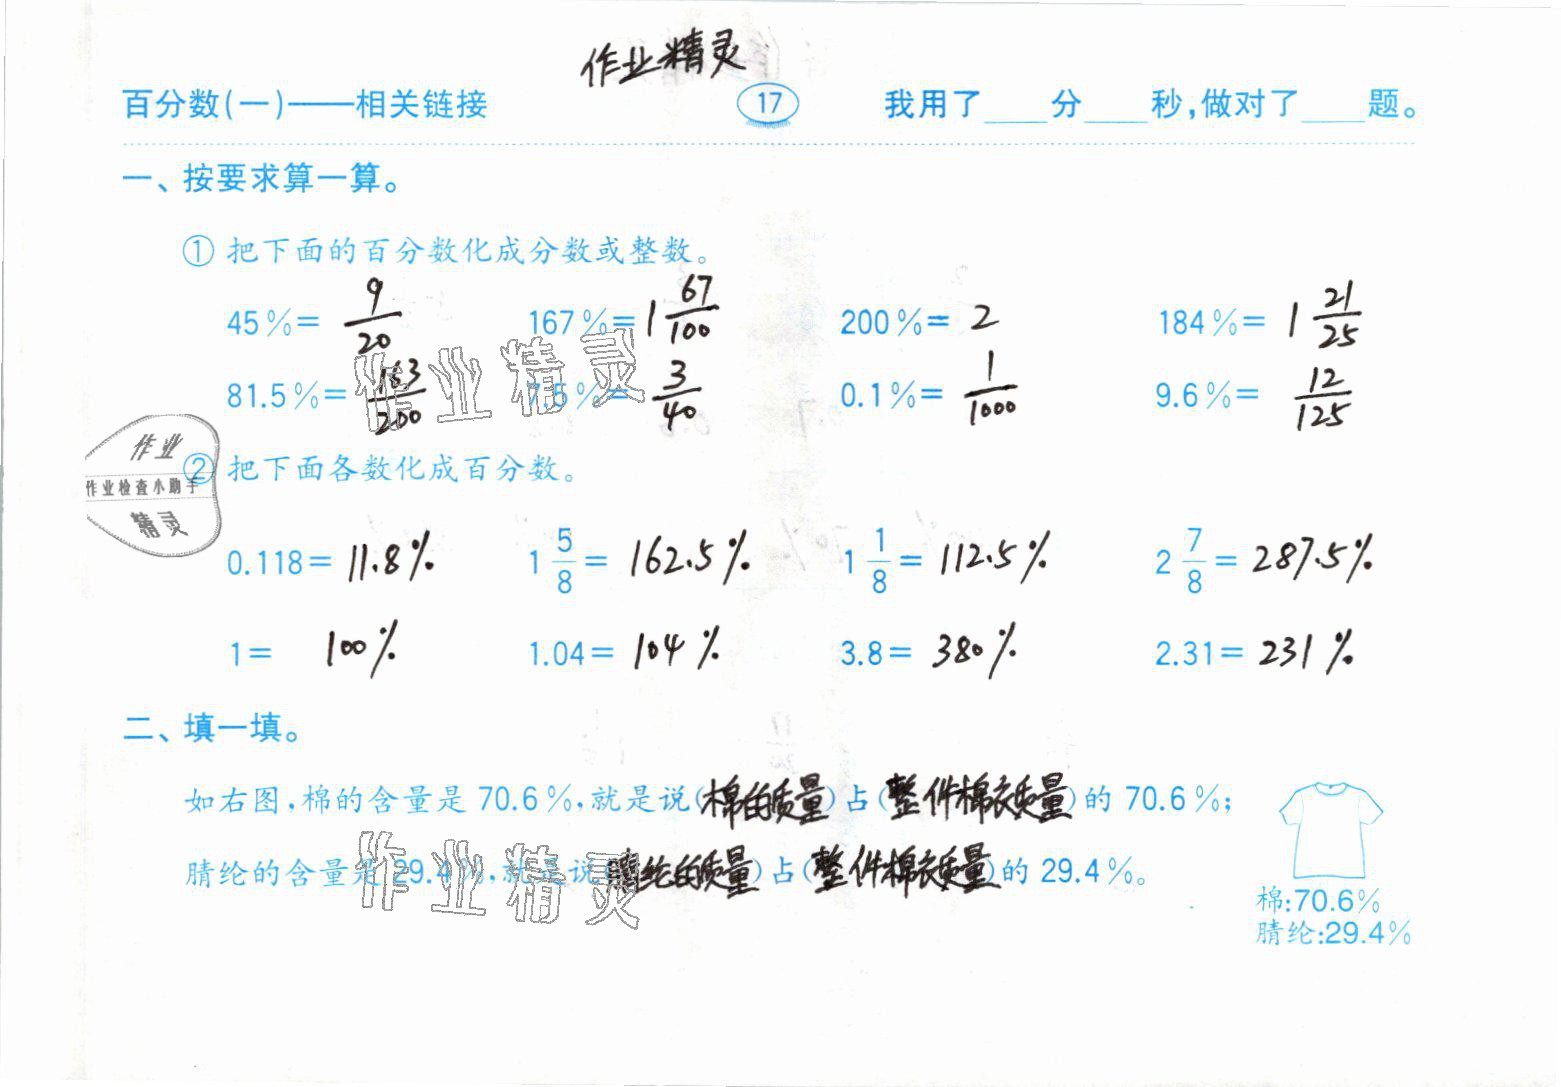 作业精灵
百分数(一)——相关链接 17 我用了____分____秒,做对了____题。
一、按要求算一算。
① 把下面的百分数化成分数或整数。
45%= 9/20 167%= 1 67/100 200%= 2 184%= 1 21/25
81.5%= 163/200 7.5%= 3/40 0.1%= 1/1000 9.6%= 12/125
作业精灵
作业
作业检查小助手
精灵
② 把下面各数化成百分数。
0.118= 11.8% 1 5/8= 162.5% 1 1/8= 112.5% 2 7/8= 287.5%
1= 100% 1.04= 104% 3.8= 380% 2.31= 231%
二、填一填。
如右图,棉的含量是 70.6%,就是说(棉的质量)占(整件棉衣质量)的 70.6%;
腈纶的含量是 29.4%,就是说(腈纶的质量)占(整件棉衣质量)的 29.4%。
作业精灵
棉:70.6%
腈纶:29.4%